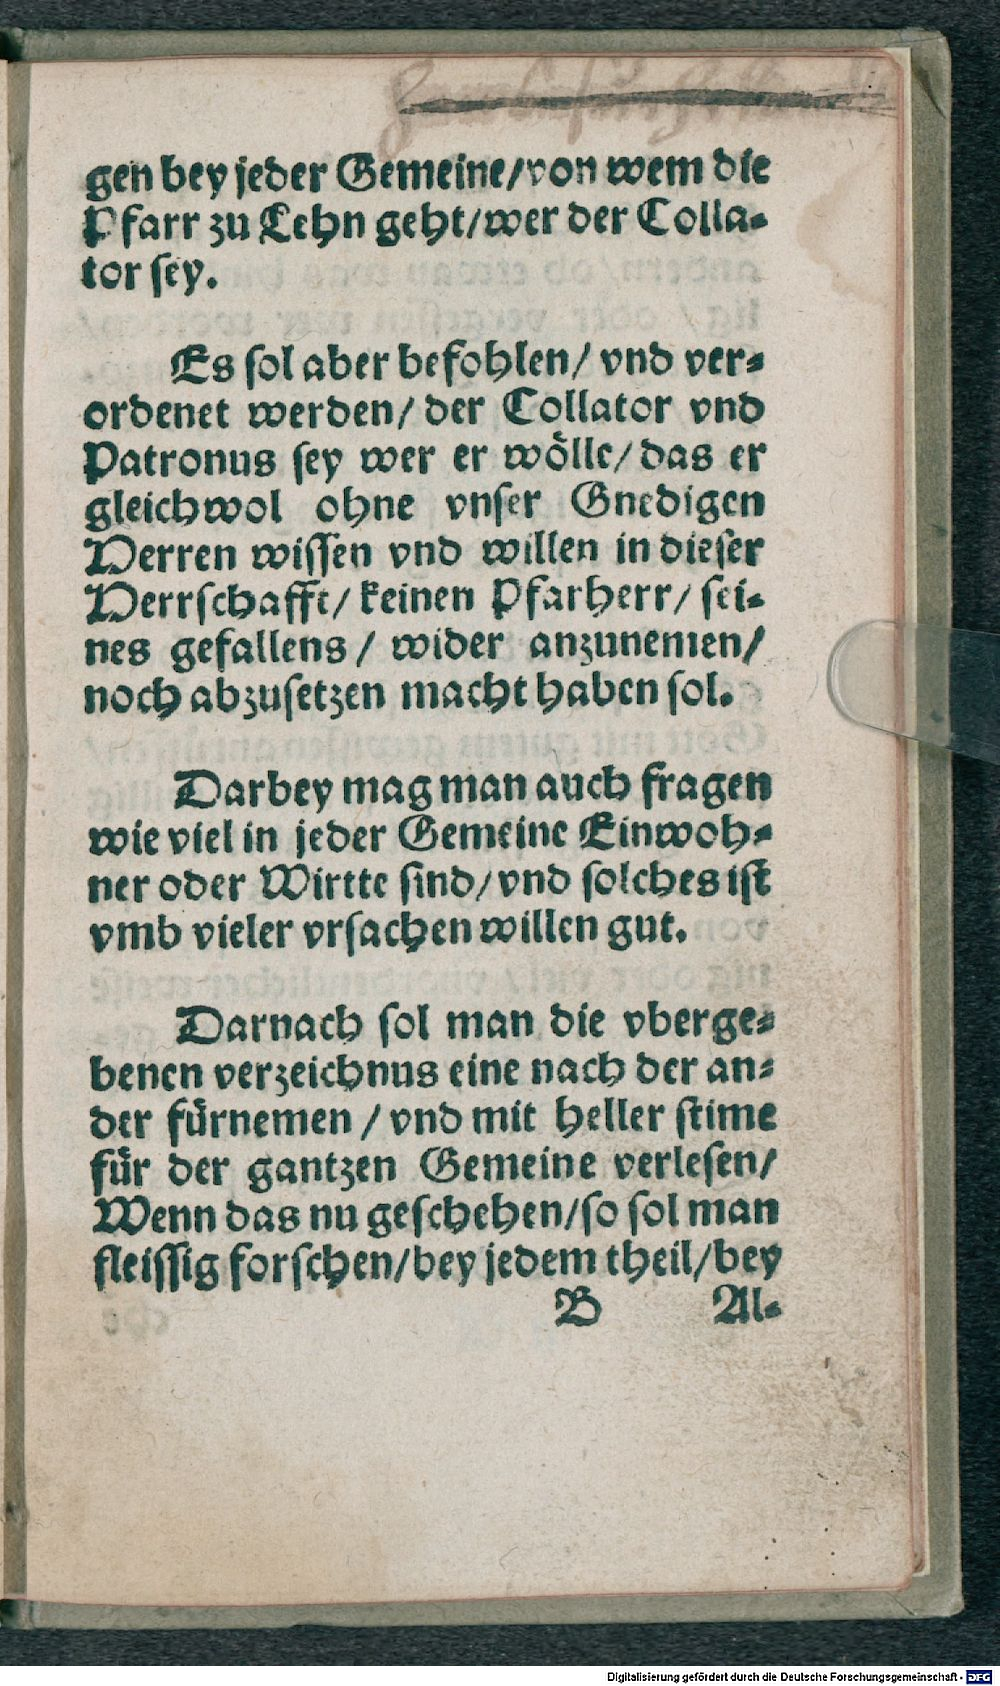 gen bey jeder Gemeine/von wem die
Pfarr zu Lehn geht/wer der Colla-
tor sey.
Es sol aber befohlen/ vnd ver-
ordenet werden/ der Collator vnd
Patronus sey wer er wölle/ das er
gleichwol ohne vnser Gnedigen
Herren wissen vnd willen in dieser
Herrschafft/ keinen Pfarherr/ sei-
nes gefallens / wider anzunemen/
noch abzusetzen macht haben sol.
Darbey mag man auch fragen
wie viel in jeder Gemeine Einwoh-
ner oder Wirtte sind/vnd solches ist
vmb vieler vrsachen willen gut.
Darnach sol man die vberge-
benen verzeichnus eine nach der an-
der fürnemen / vnd mit heller stime
für der gantzen Gemeine verlesen/
Wenn das nu geschehen/so sol man
fleissig forschen/bey jedem theil/bey
B Al-
Digitalisierung gefördert durch die Deutsche Forschungsgemeinschaft - DFG